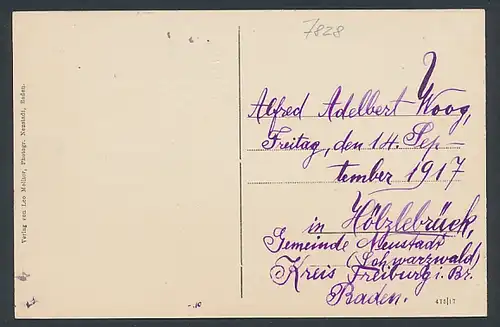 7828
Alfred Adelbert Woog,
Freitag, den 14. Sep-
tember 1917
in Hölzlebrück,
Gemeinde Neustadt
(Schwarzwald)
Kreis Freiburg i. Br.
Baden.
Verlag von Leo Meßner, Photogr. Neustadt, Baden.